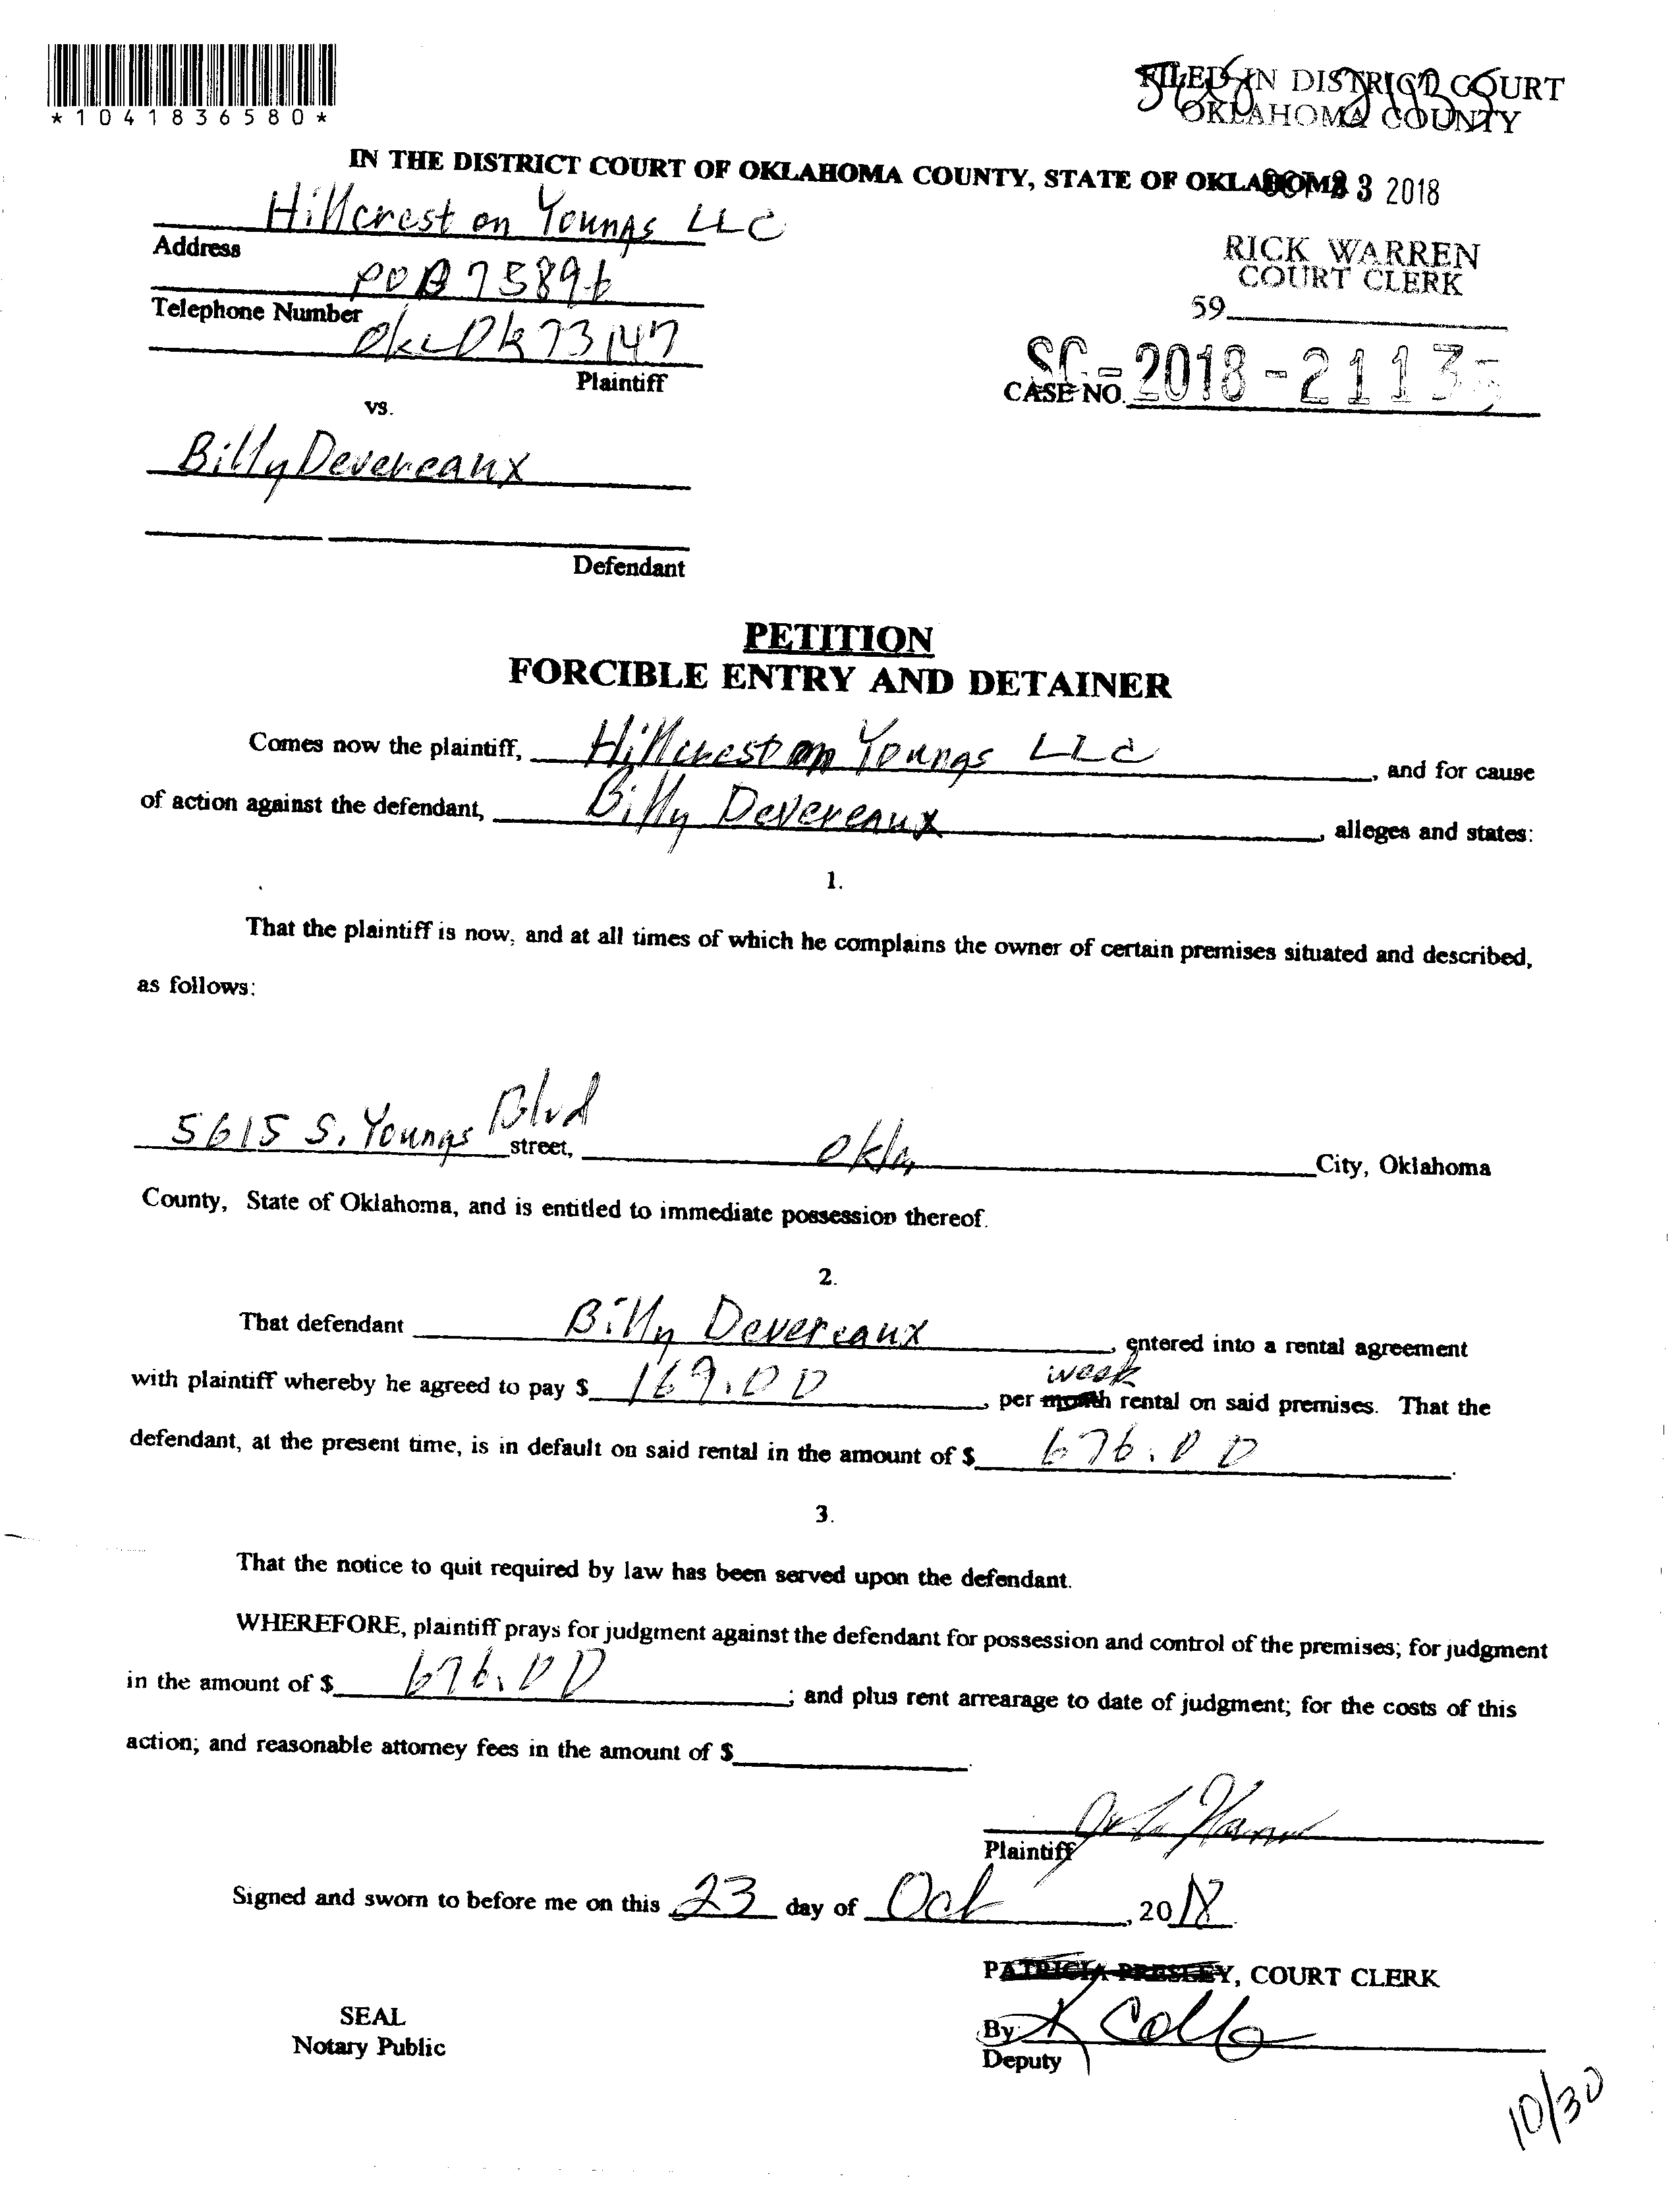 *1041836580*
FILED IN DISTRICT COURT
OKLAHOMA COUNTY
IN THE DISTRICT COURT OF OKLAHOMA COUNTY, STATE OF OKLAHOMA
OCT 23 2018
Hillcrest on Youngs LLC
Address
RICK WARREN
COURT CLERK
POB 75896
Telephone Number
59
Okc Ok 73147
Plaintiff
CASE NO. SC-2018-21135
vs.
Billy Devereaux
Defendant
PETITION
FORCIBLE ENTRY AND DETAINER
Comes now the plaintiff, Hillcrest on Youngs LLC, and for cause
of action against the defendant, Billy Devereaux, alleges and states:
1.
That the plaintiff is now, and at all times of which he complains the owner of certain premises situated and described,
as follows:
5615 S. Youngs Blvd street, Okla City, Oklahoma
County, State of Oklahoma, and is entitled to immediate possession thereof.
2.
That defendant Billy Devereaux, entered into a rental agreement
week
with plaintiff whereby he agreed to pay $ 169.00, per month rental on said premises. That the
defendant, at the present time, is in default on said rental in the amount of $ 676.00.
3.
That the notice to quit required by law has been served upon the defendant.
WHEREFORE, plaintiff prays for judgment against the defendant for possession and control of the premises; for judgment
in the amount of $ 676.00; and plus rent arrearage to date of judgment; for the costs of this
action; and reasonable attorney fees in the amount of $
Plaintiff
Signed and sworn to before me on this 23 day of Oct, 2018.
PATRICIA PRESLEY, COURT CLERK
SEAL
Notary Public
By:
Deputy
10/30